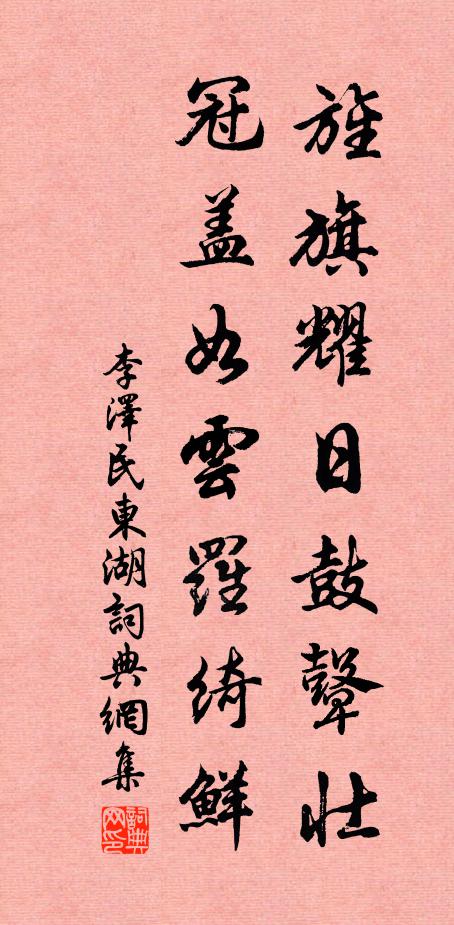 旌旗耀日鼓鼙壯
冠盖如雲羅綺鮮
李澤民東湖詞典網集
詞典网印